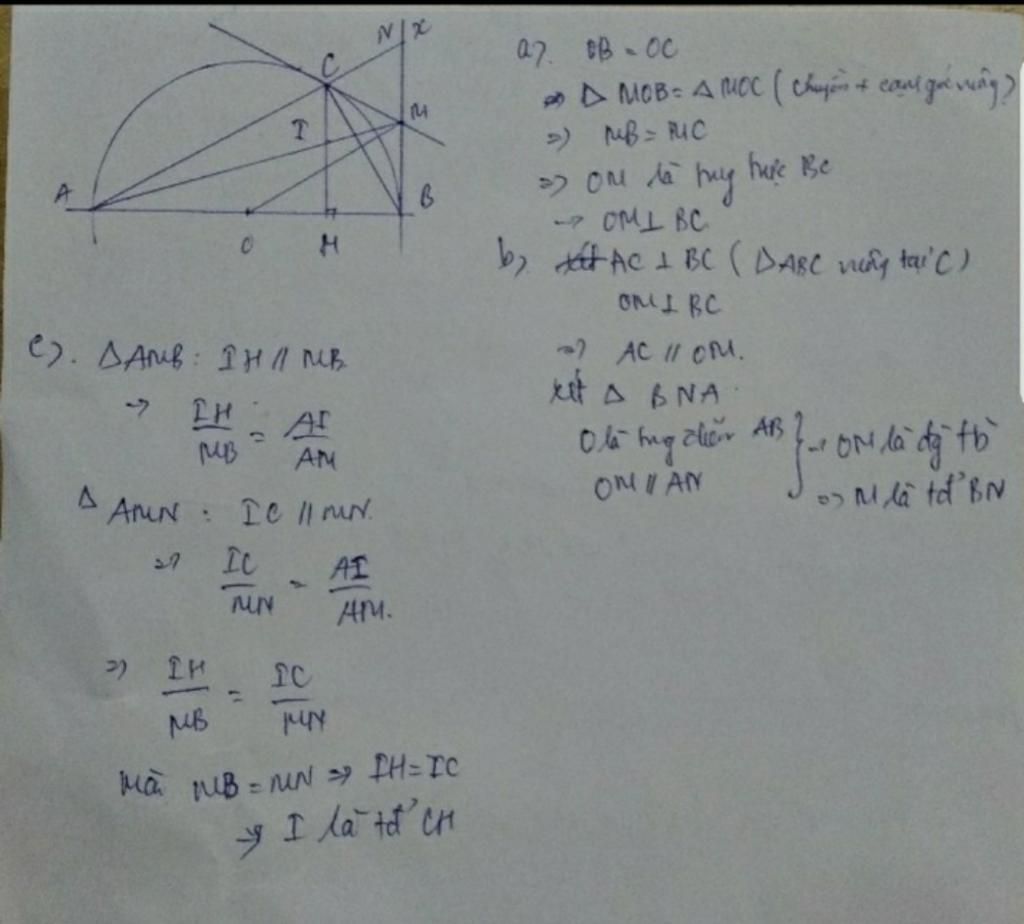 N x
C
M
I
A
B
O
H
a). OB = OC
=> Δ MOB = Δ MOC (
=> MB = MC
=> OM là trung trực BC
-> OM ⊥ BC.
b) xét AC ⊥ BC (ΔABC vuông tại C)
OM ⊥ BC
=> AC // OM.
xét Δ BNA.
O là trung điểm AB } -> OM là đg tb
OM // AN => M là tđ' BN
c). ΔAMB: IH // MB
-> IH/MB = AI/AM
Δ AMN: IC // MN.
=> IC/MN = AI/AM.
=> IH/MB = IC/MN
Mà MB = MN => IH = IC
=> I là tđ' CH